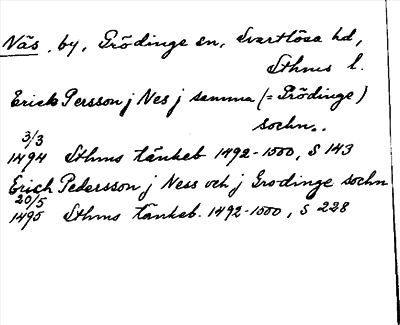 Näs, by, Grödinge sn, Svartlösa hd,
Sthms l.
Erick Persson j Nes j samma (= Grödinge)
sochn..
3/3
1494 Sthms tänkeb 1492-1500, S 143
Erich Pedersson j Ness och j Grodinge sochn
20/5
1495 Sthms tänkeb. 1492-1500, S 228